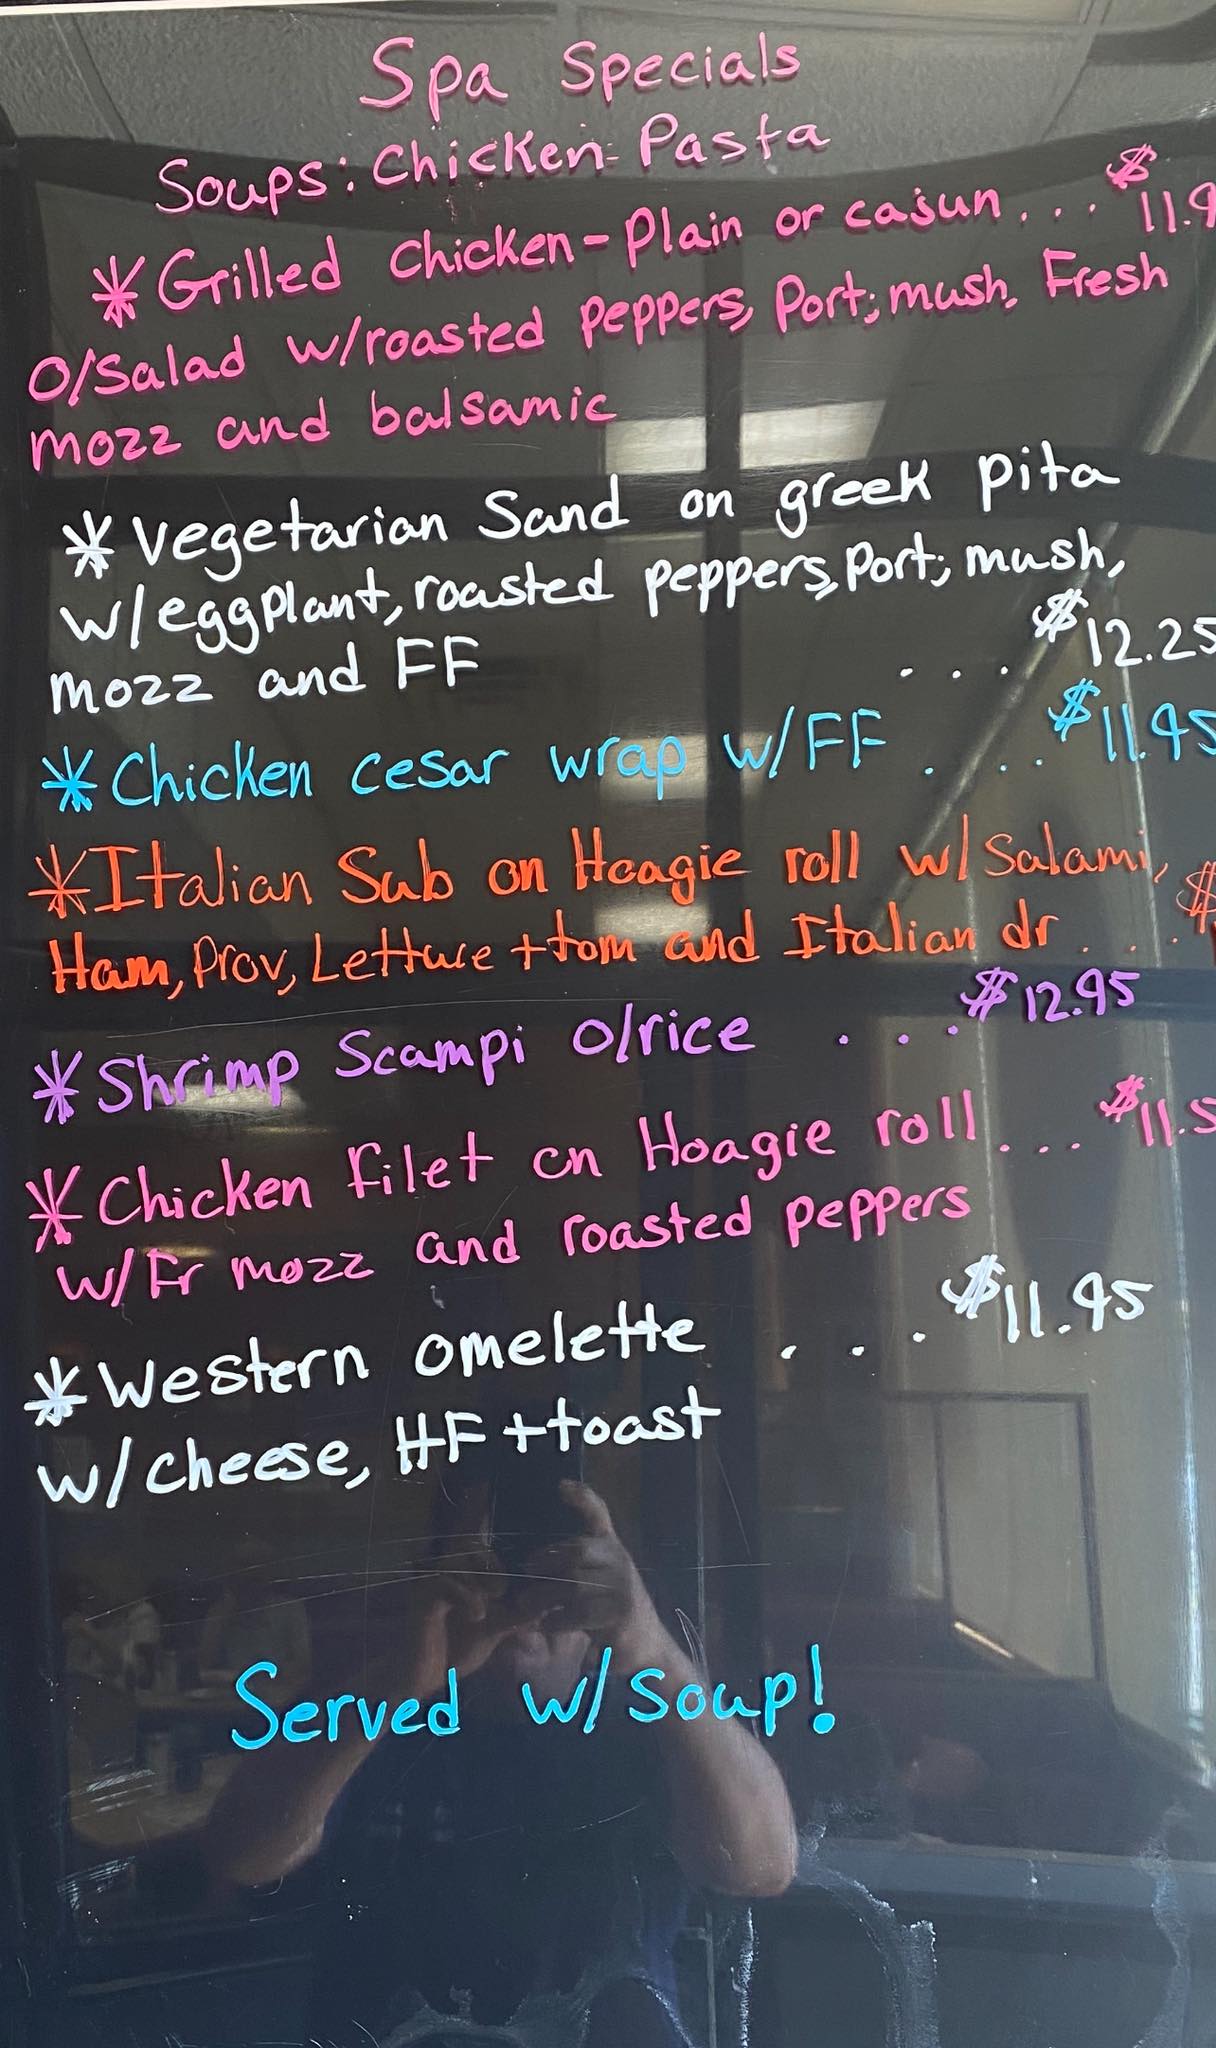 Spa Specials
Soups: Chicken-Pasta
*Grilled Chicken-Plain or cajun... $11.9
O/Salad w/roasted peppers, Port; mush, Fresh
mozz and balsamic
*Vegetarian Sand on greek pita
w/eggplant, roasted peppers, Port; mush,
mozz and FF ... $12.25
*Chicken cesar wrap w/FF .... $11.95
*Italian Sub on Hoagie roll w/Salami,
Ham, Prov, Lettuce + tom and Italian dr ... $
*Shrimp Scampi O/rice ... $12.95
*Chicken Filet on Hoagie roll... $11.5
w/Fr mozz and roasted peppers
*Western omelette ... $11.95
w/cheese, HF + toast
Served w/soup!